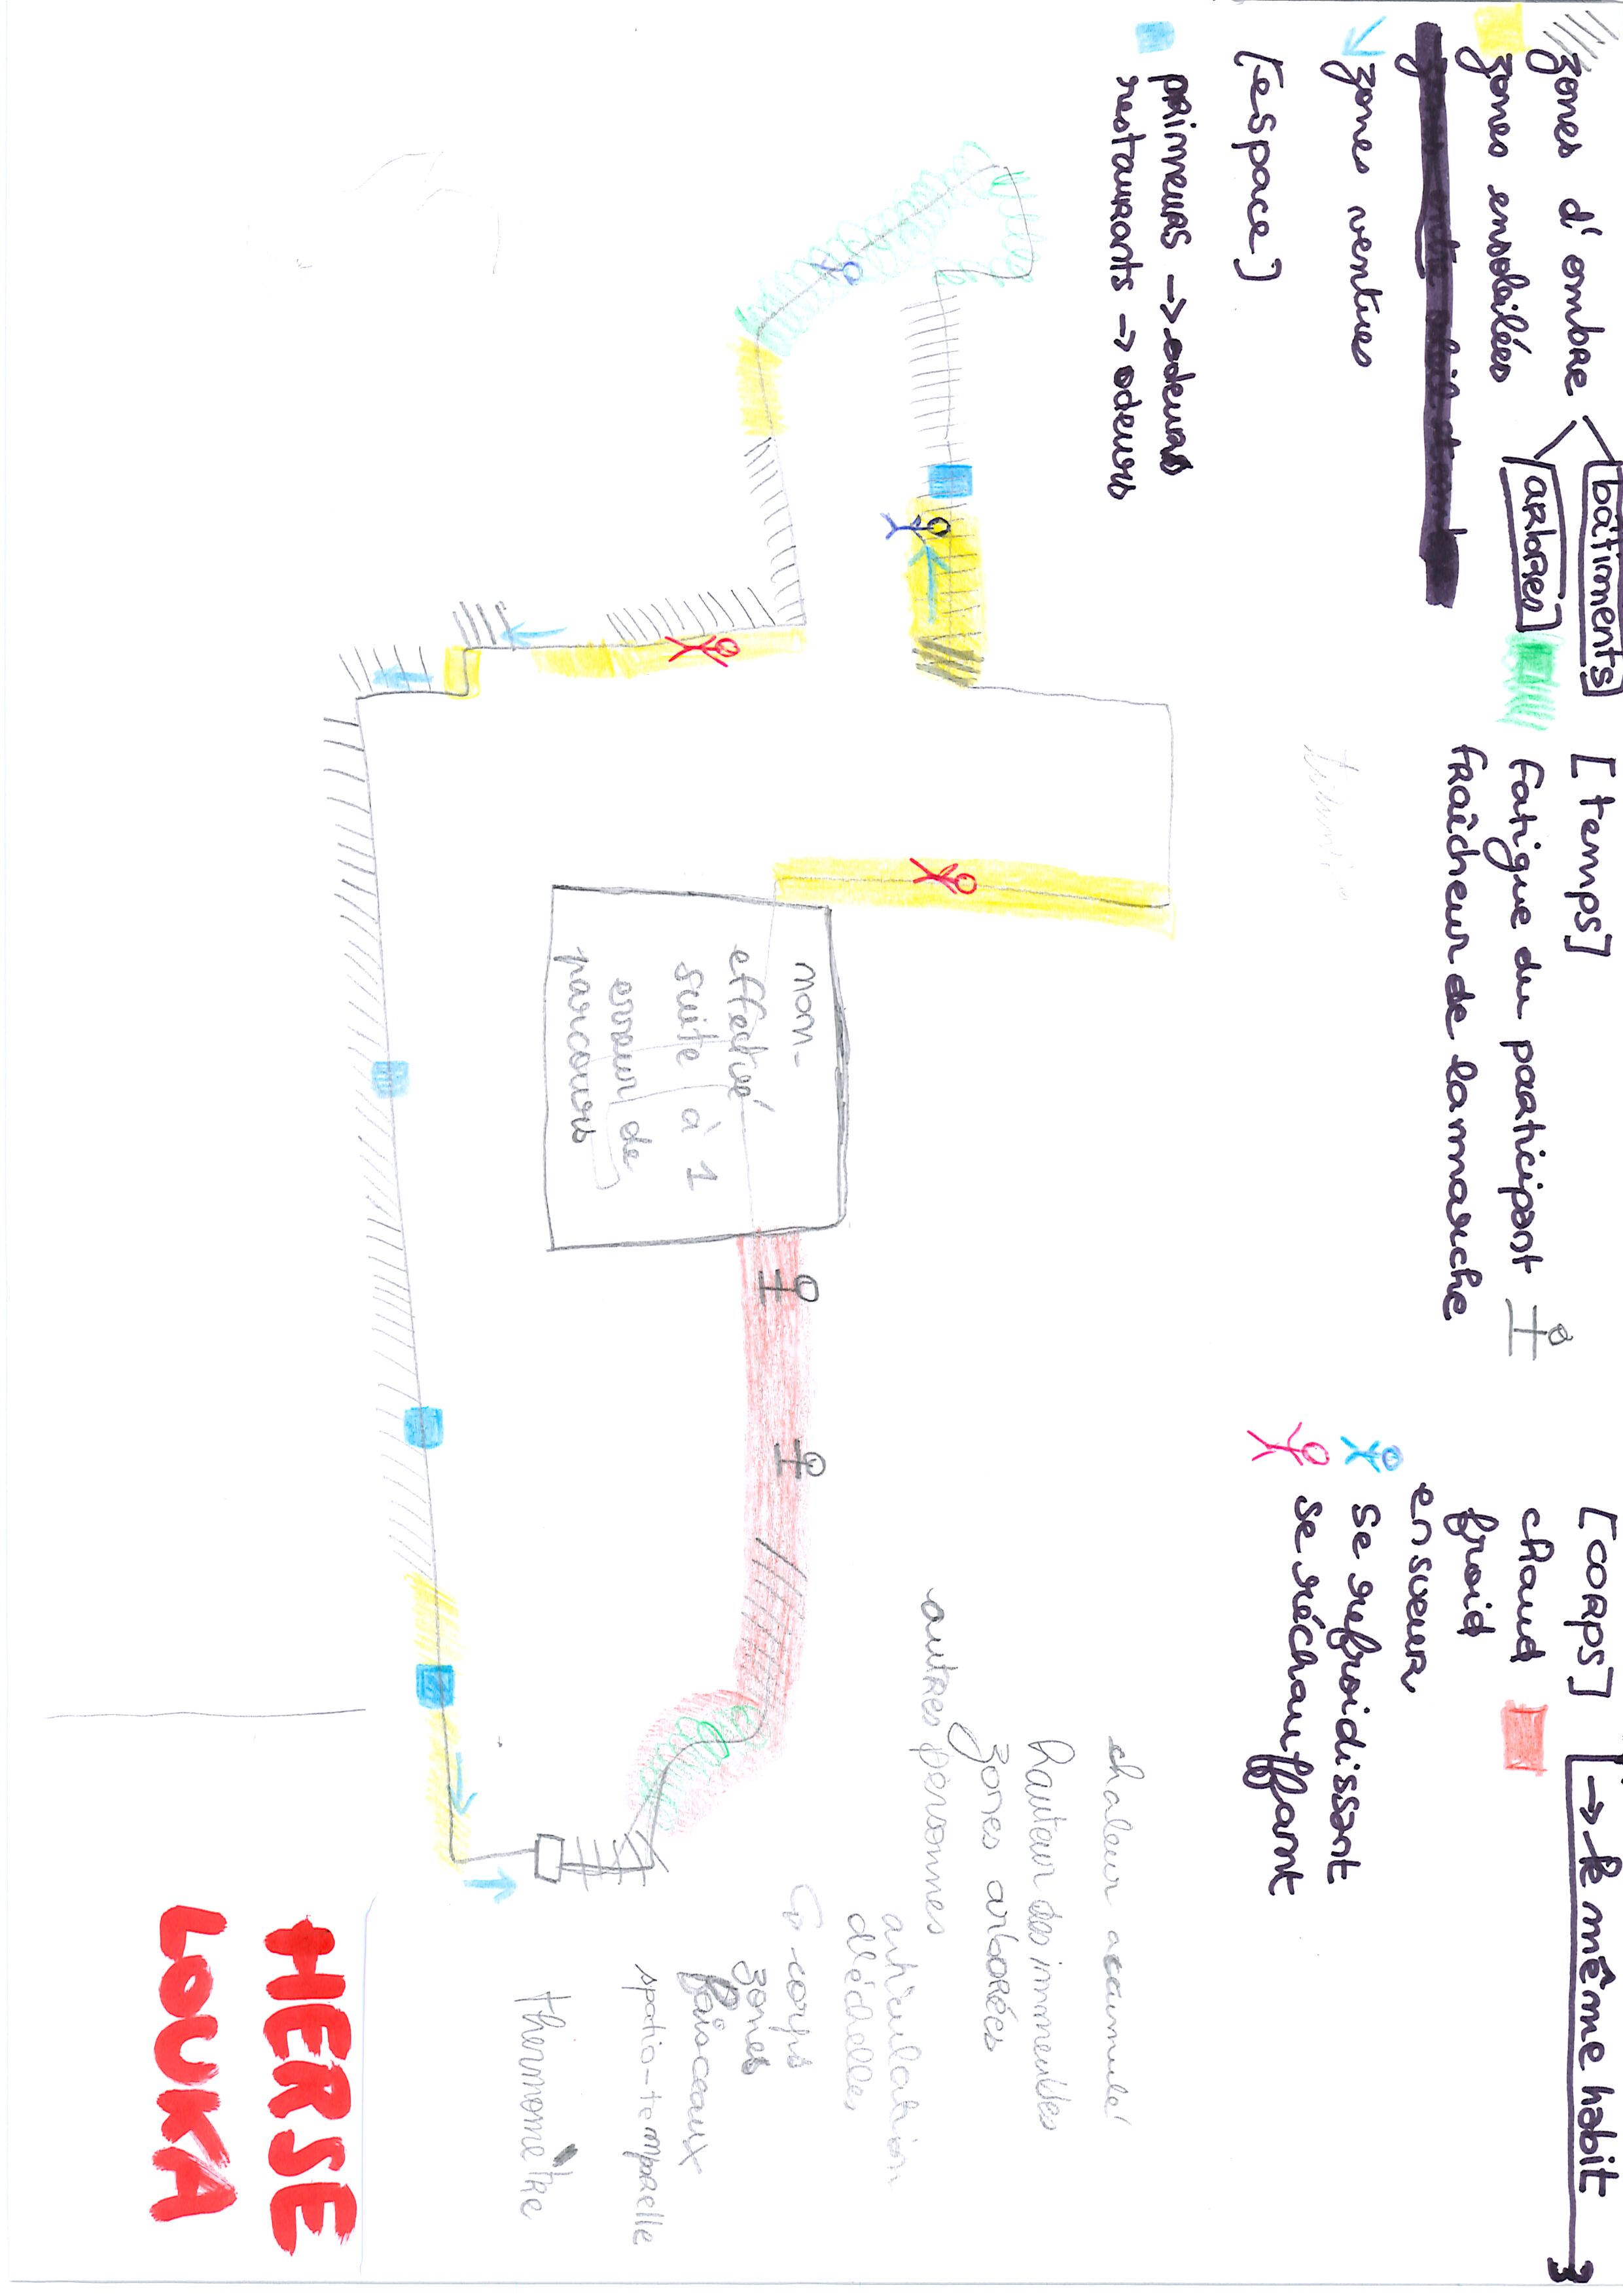 zones d'ombre
bâtiments
arborés
zones ensoleillées
zones ventues
[espace]
PRIMEURS -> odeurs
restaurants -> odeurs
[temps]
Fatigue du participant
FRAÎCHEUR de la marche
[CORPS]
[-> le même habit]
chaud
froid
en sueur
se refroidissant
se réchauffant
non-
effectué
suite à 1
erreur de
parcours
chaleur accumulé
hauteur des immeubles
zones arborées
autres personnes
articulation
d'échelles
corps
zones
faisceaux
spatio-temporelle
thermomètre
HERSE
LOUKA